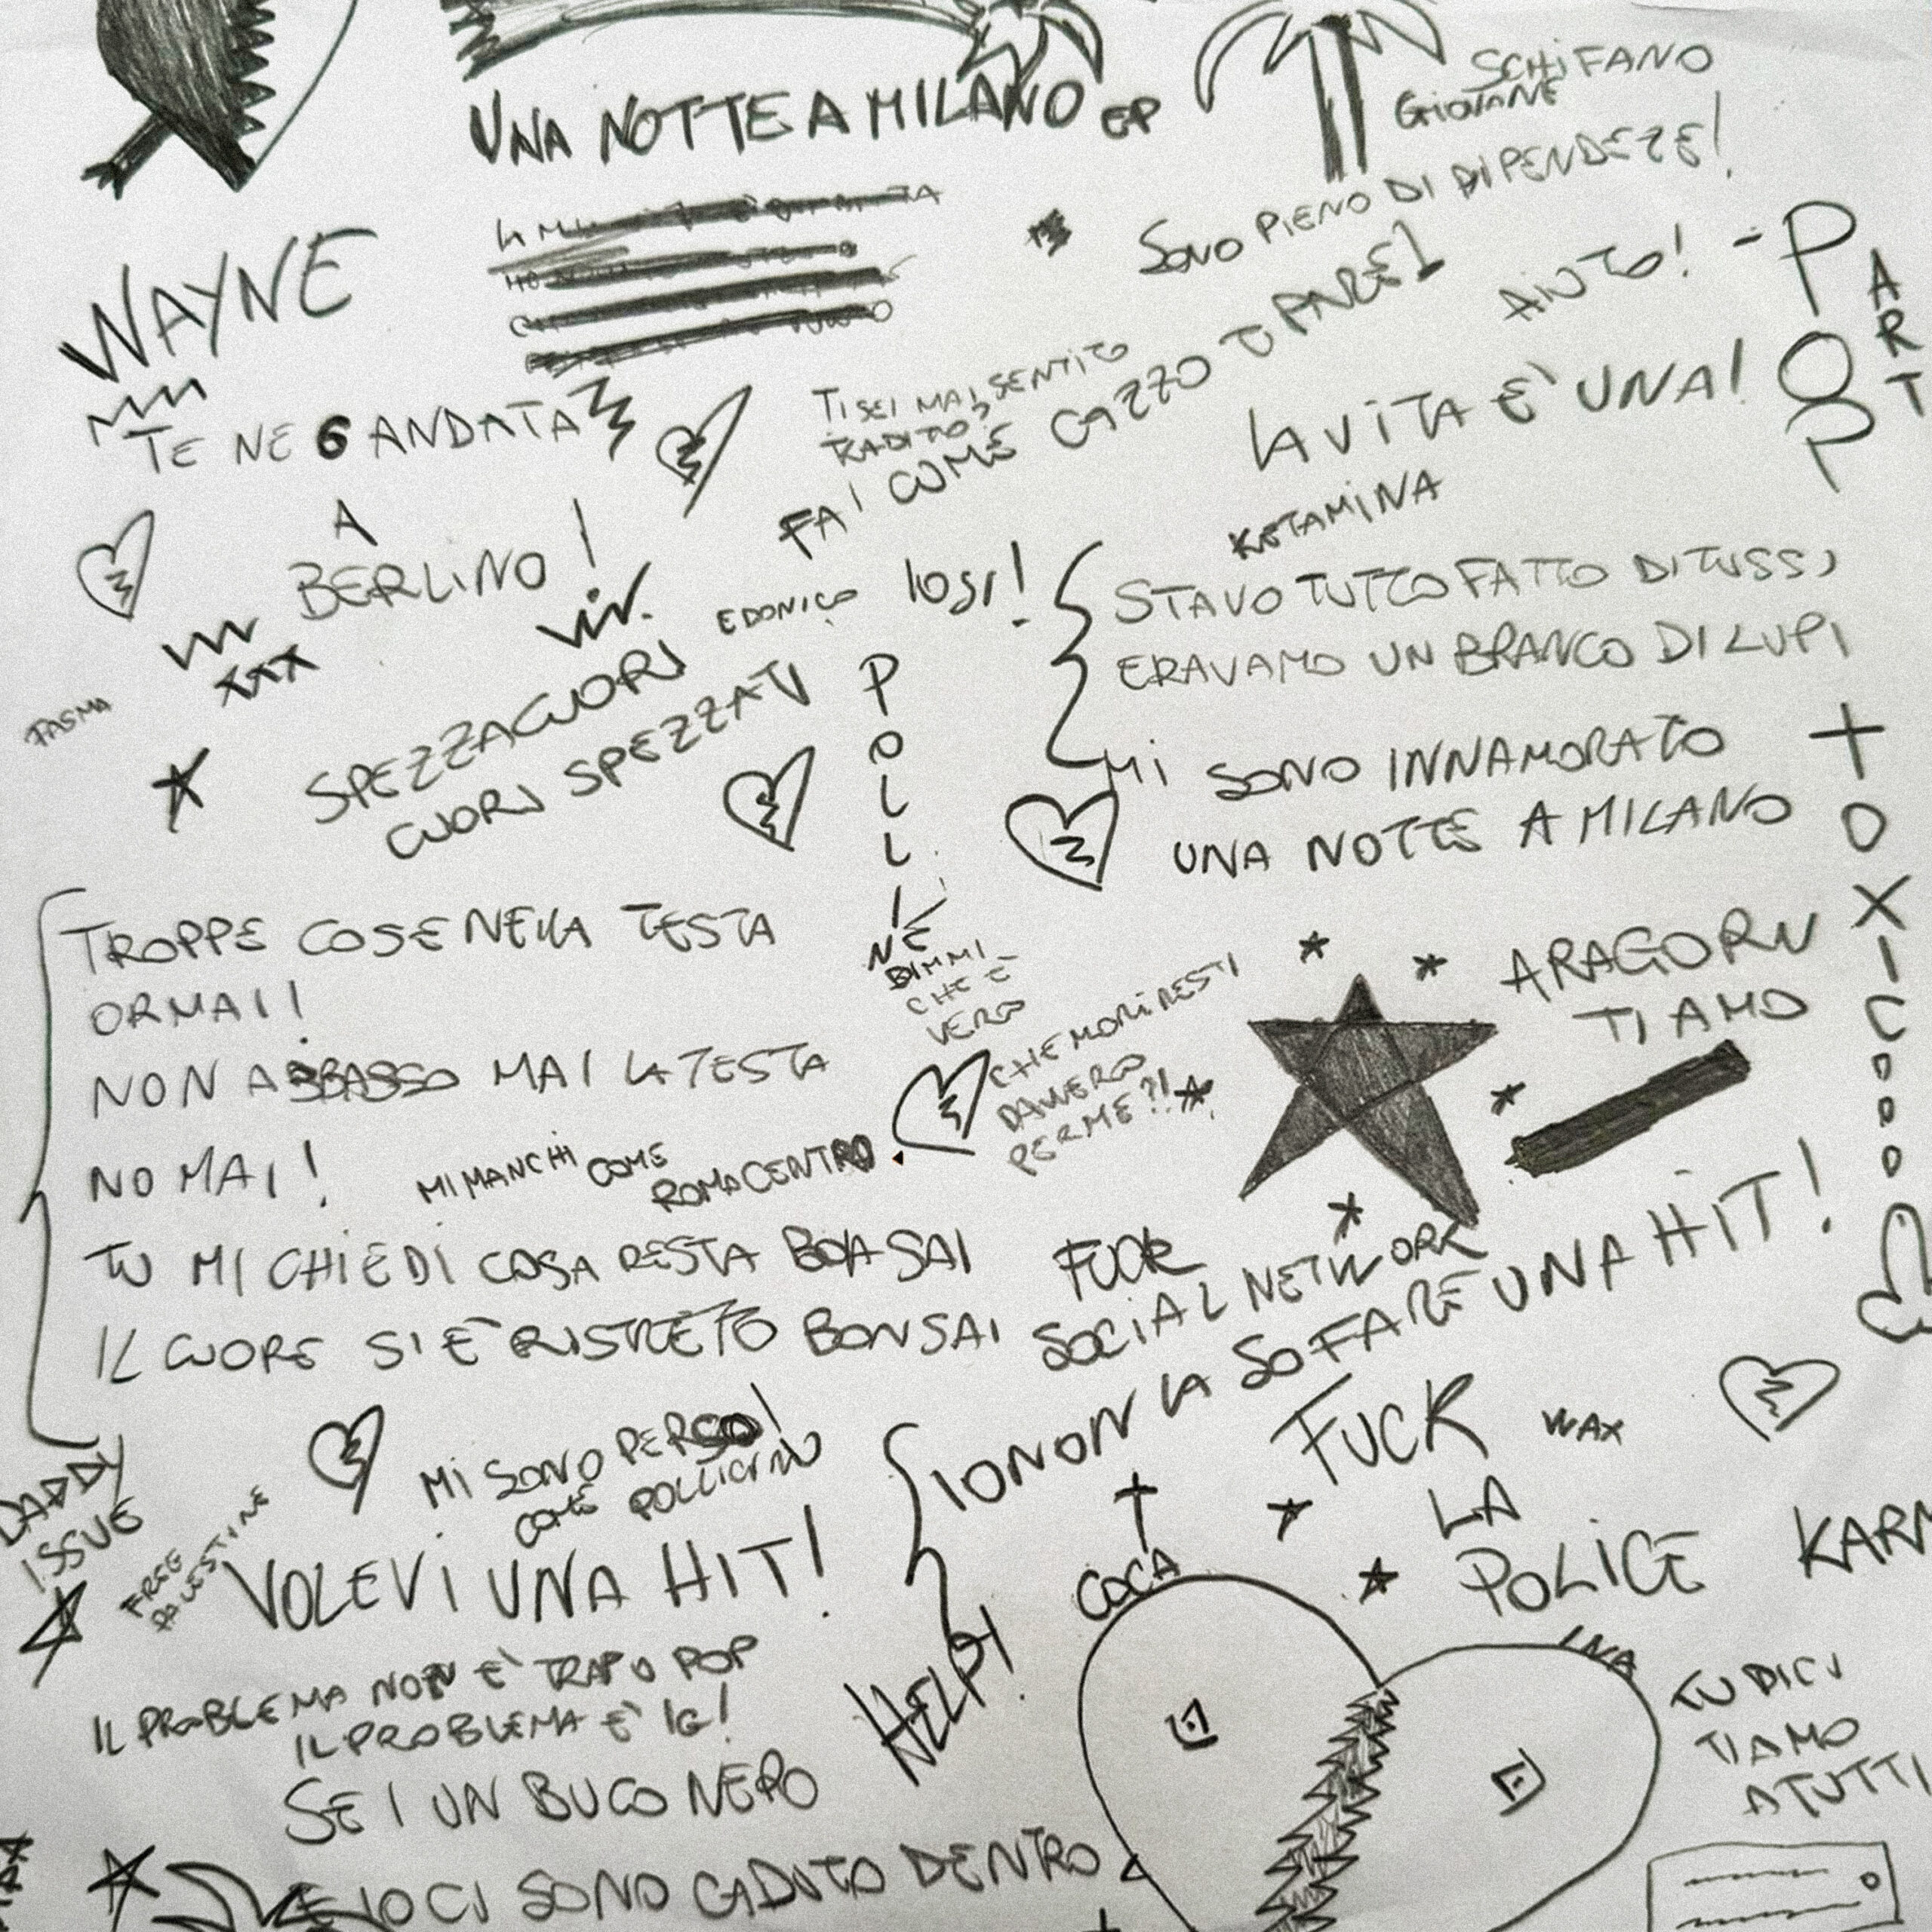 UNA NOTTE A MILANO EP
SCHIFANO
GIOVANE
SONO PIENO DI DIPENDEZE!
WAYNE
AIUTO! - POP
ART
TE NE 6 ANDATA
A
BERLINO!
TI SEI MAI SENTITO
TRADITO?
FAI COME CAZZO TI PARE!
LA VITA E' UNA!
KETAMINA
EDONICO
STAVO TUTTO FATTO DI TUSS,
ERAVAMO UN BRANCO DI LUPI
MI SONO INNAMORATO
UNA NOTTE A MILANO
XXX
FASMA
SPEZZACUORI
CUORI SPEZZATI
TOXIC
TROPPE COSE NELLA TESTA
ORMAI!
NON ABBASSO MAI LA TESTA
NO MAI!
MI MANCHI COME
ROMA CENTRO
TU MI CHIEDI COSA RESTA BOASAI
IL CUORE SI E' RISTRETTO BONSAI
DIMMI
CHE E'
VERO
CHE MORIRESTI
DAVVERO
PER ME?!
ARAGORN
TI AMO
FUCK
SOCIAL NETWORK
IO NON LA SO FARE UNA HIT!
FUCK
LA
POLICE
WAX
KARM
DADDY
ISSUE
FREE
PALESTINE
MI SONO PERSO!
COME POLLICINO
VOLEVI UNA HIT!
HELP!
COCA
INA
IL PROBLEMA NON E' TRAP O POP
IL PROBLEMA E' IG!
SEI UN BUCO NERO
E IO CI SONO CADUTO DENTRO
TU DICI
TI AMO
A TUTTI